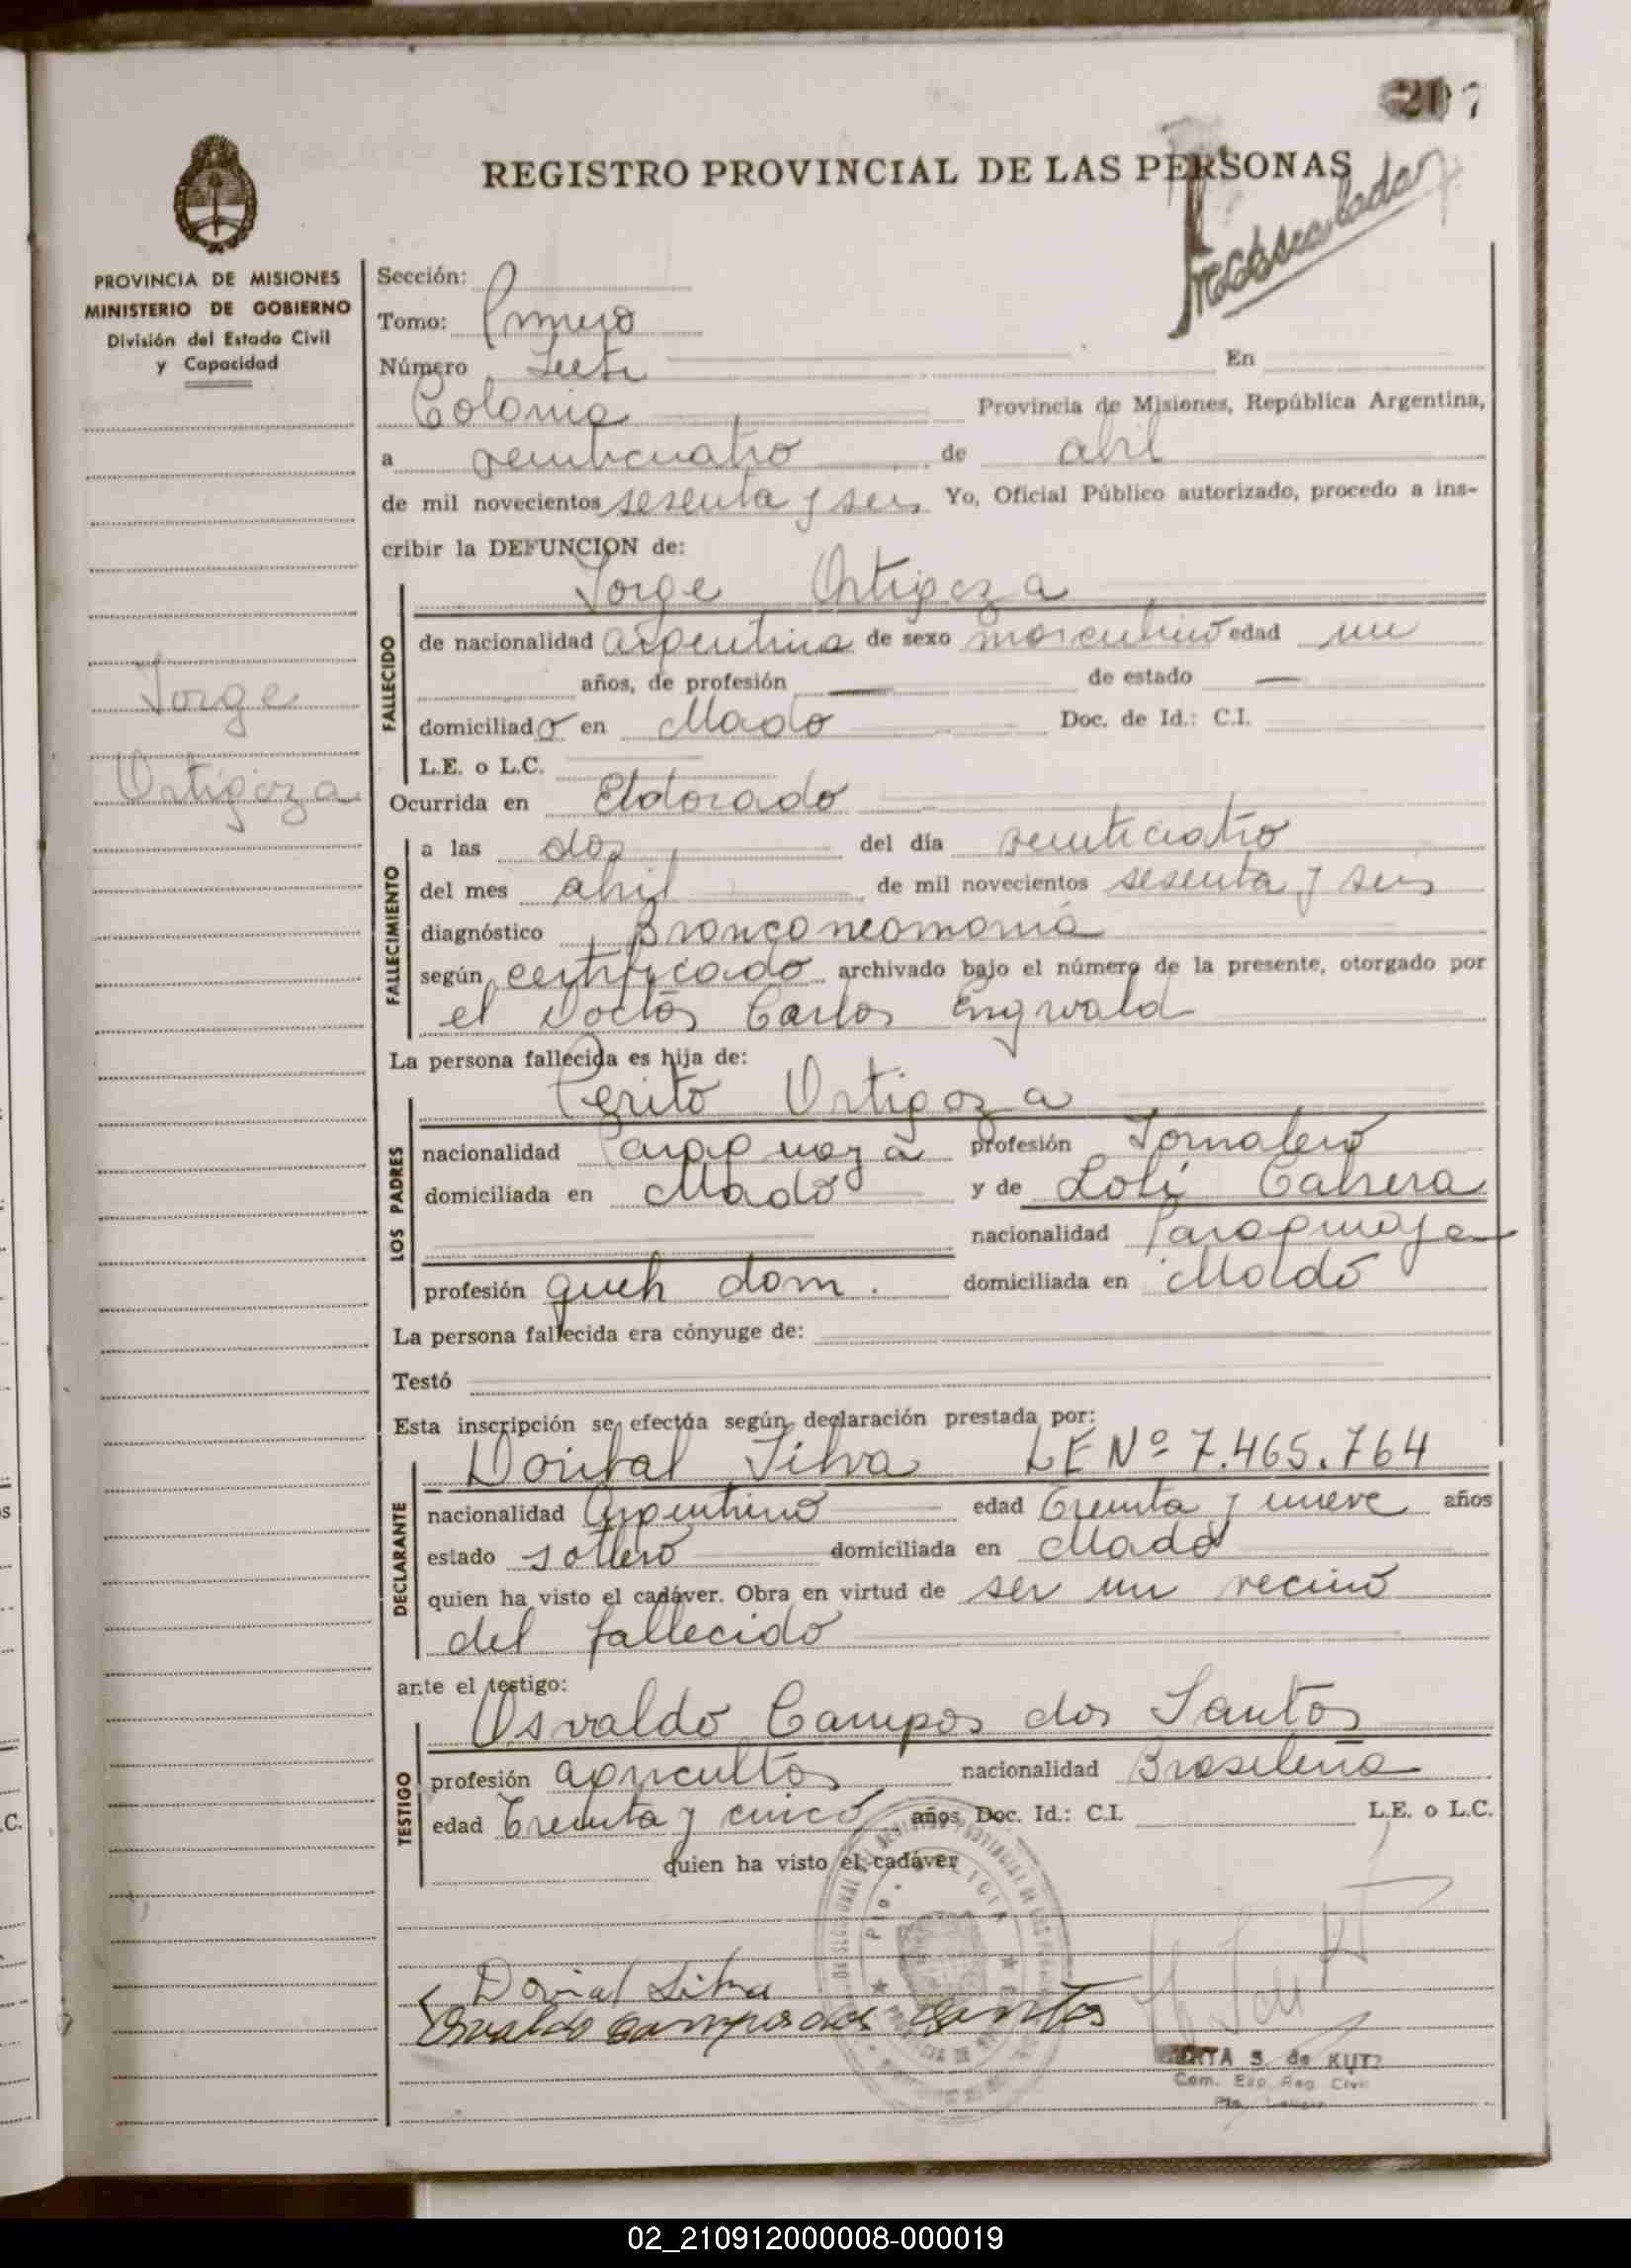 7
REGISTRO PROVINCIAL DE LAS PERSONAS
PROVINCIA DE MISIONES
MINISTERIO DE GOBIERNO
División del Estado Civil
y Capacidad
Jorge
Ortigoza
Sección:
Tomo: Primero
Número Siete En
Colonia Provincia de Misiones, República Argentina,
a veinticuatro de abril
de mil novecientos sesenta y seis Yo, Oficial Público autorizado, procedo a ins-
cribir la DEFUNCION de:
Jorge Ortigoza
FALLECIDO
de nacionalidad argentina de sexo masculino edad un
años, de profesión — de estado —
domiciliado en Mado Doc. de Id.: C.I.
L.E. o L.C.
Ocurrida en Eldorado
FALLECIMIENTO
a las dos del día veinticuatro
del mes abril de mil novecientos sesenta y seis
diagnóstico Bronconeomonia
según certificado archivado bajo el número de la presente, otorgado por
el Doctor Carlos Engwald
La persona fallecida es hija de:
Perito Ortigoza
LOS PADRES
nacionalidad Paraguaya profesión Jornalero
domiciliada en Mado y de Loli Cabrera
nacionalidad Paraguaya
profesión queh dom. domiciliada en Mado
La persona fallecida era cónyuge de:
Testó
Esta inscripción se efectúa según declaración prestada por:
Dorival Silva LE Nº 7.465.764
DECLARANTE
nacionalidad Argentino edad Treinta y nueve años
estado soltero domiciliada en Mado
quien ha visto el cadáver. Obra en virtud de ser un vecino
del fallecido
ante el testigo:
Osvaldo Campos dos Santos
TESTIGO
profesión agricultor nacionalidad Brasileña
edad Treinta y cinco años Doc. Id.: C.I. L.E. o L.C.
quien ha visto el cadáver
Dorival Silva
Osvaldo Campos dos Santos
S. de KUTZ
02_210912000008-000019